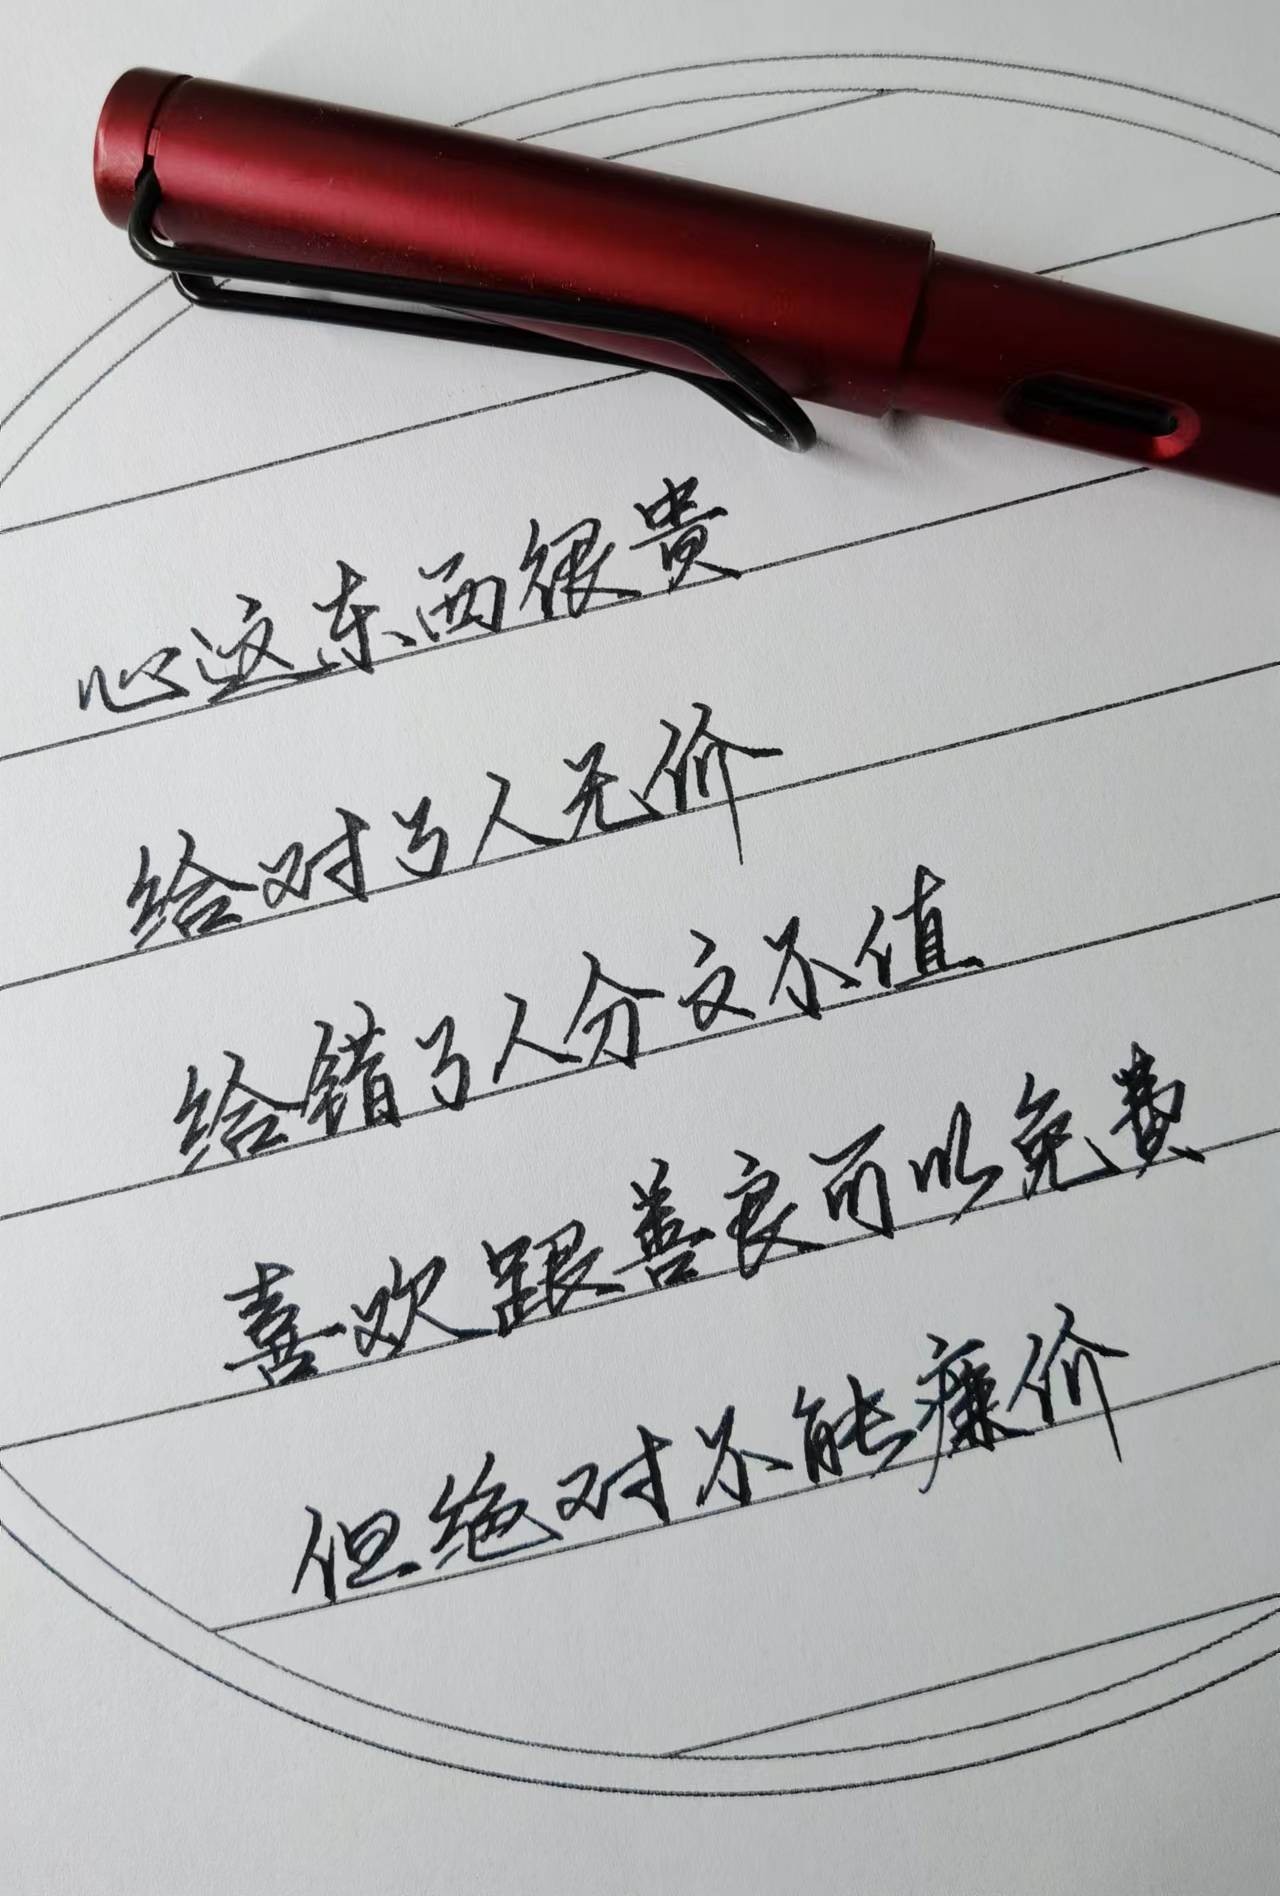 心这东西很贵
给对了人无价
给错了人分文不值
喜欢跟善良可以免费
但绝对不能廉价